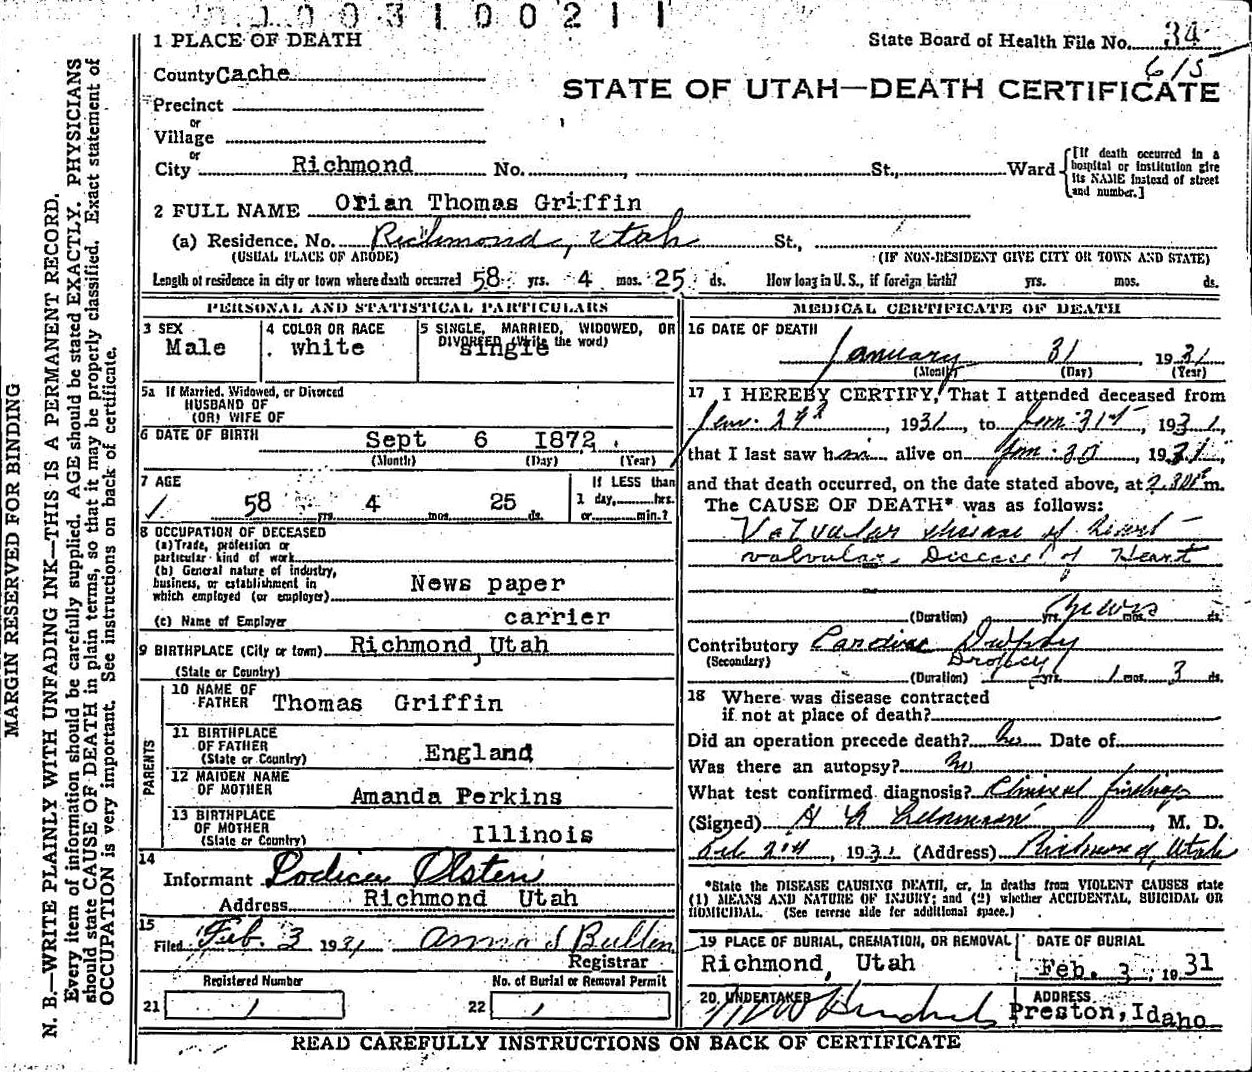 1003100211
1 PLACE OF DEATH
State Board of Health File No. 34
615
County Cache
STATE OF UTAH—DEATH CERTIFICATE
Precinct
or
Village
or
City Richmond No. St., Ward
[If death occurred in a hospital or institution give its NAME instead of street and number.]
2 FULL NAME Orian Thomas Griffin
(a) Residence. No. Richmond, Utah St.,
(USUAL PLACE OF ABODE) (IF NON-RESIDENT GIVE CITY OR TOWN AND STATE)
Length of residence in city or town where death occurred 58 yrs. 4 mos. 25 ds. How long in U. S., if foreign birth? yrs. mos. ds.
PERSONAL AND STATISTICAL PARTICULARS
3 SEX
Male
4 COLOR OR RACE
white
5 SINGLE, MARRIED, WIDOWED, OR
DIVORCED (Write the word)
single
5a If Married, Widowed, or Divorced
HUSBAND OF
(OR) WIFE OF
6 DATE OF BIRTH
Sept 6 1872
(Month) (Day) (Year)
7 AGE
58 yrs. 4 mos. 25 ds.
If LESS than
1 day, hrs.
or min.?
8 OCCUPATION OF DECEASED
(a) Trade, profession or
particular kind of work
(b) General nature of industry,
business, or establishment in
which employed (or employer) News paper
(c) Name of Employer carrier
9 BIRTHPLACE (City or town) Richmond, Utah
(State or Country)
PARENTS
10 NAME OF
FATHER Thomas Griffin
11 BIRTHPLACE
OF FATHER
(State or Country) England
12 MAIDEN NAME
OF MOTHER Amanda Perkins
13 BIRTHPLACE
OF MOTHER
(State or Country) Illinois
14
Informant Lodicea Olsten
Address Richmond Utah
15
Filed Feb. 3 1931 Anna S Bullen
Registrar
Registered Number
21 1
No. of Burial or Removal Permit
22 1
MEDICAL CERTIFICATE OF DEATH
16 DATE OF DEATH
January 31 1931
(Month) (Day) (Year)
17 I HEREBY CERTIFY, That I attended deceased from
Jan. 1931, to Jan. 31st, 1931,
that I last saw him alive on Jan. 30, 1931,
and that death occurred, on the date stated above, at m.
The CAUSE OF DEATH* was as follows:
Valvular disease of heart —
valvular Disease of Heart
(Duration) yrs. mos. ds.
Years
Contributory Cardiac Dropsy
(Secondary) Dropsy
(Duration) yrs. 1 mos. 3 ds.
18 Where was disease contracted
if not at place of death?
Did an operation precede death? No Date of
Was there an autopsy? No
What test confirmed diagnosis? Clinical findings
(Signed) , M. D.
Feb 2nd, 1931 (Address) Richmond, Utah
*State the DISEASE CAUSING DEATH, or, in deaths from VIOLENT CAUSES state
(1) MEANS AND NATURE OF INJURY; and (2) whether ACCIDENTAL, SUICIDAL OR
HOMICIDAL. (See reverse side for additional space.)
19 PLACE OF BURIAL, CREMATION, OR REMOVAL
Richmond, Utah
DATE OF BURIAL
Feb. 3, 1931
20 UNDERTAKER
ADDRESS
Preston, Idaho
READ CAREFULLY INSTRUCTIONS ON BACK OF CERTIFICATE
MARGIN RESERVED FOR BINDING
N. B.—WRITE PLAINLY WITH UNFADING INK—THIS IS A PERMANENT RECORD.
Every item of information should be carefully supplied. AGE should be stated EXACTLY. PHYSICIANS
should state CAUSE OF DEATH in plain terms, so that it may be properly classified. Exact statement of
OCCUPATION is very important. See instructions on back of certificate.